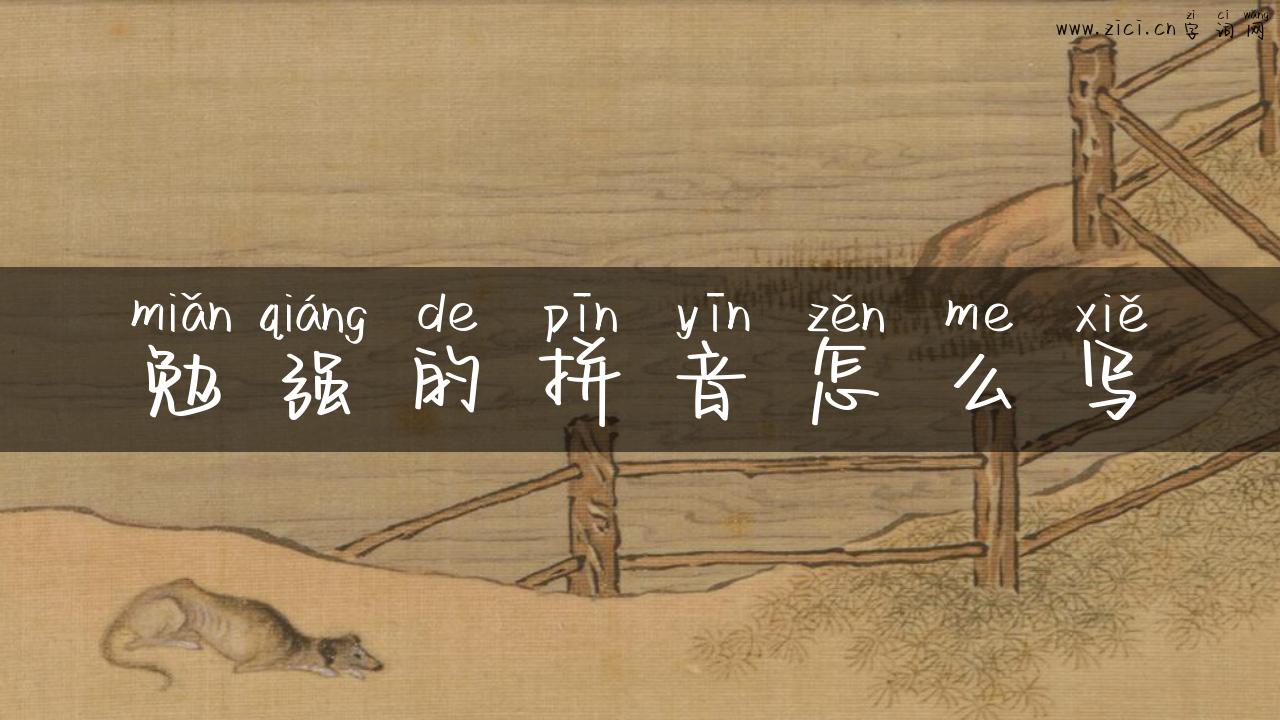 zi ci wang
www.zici.cn 字词网
miǎn qiáng de pīn yīn zěn me xiě
勉强的拼音怎么写